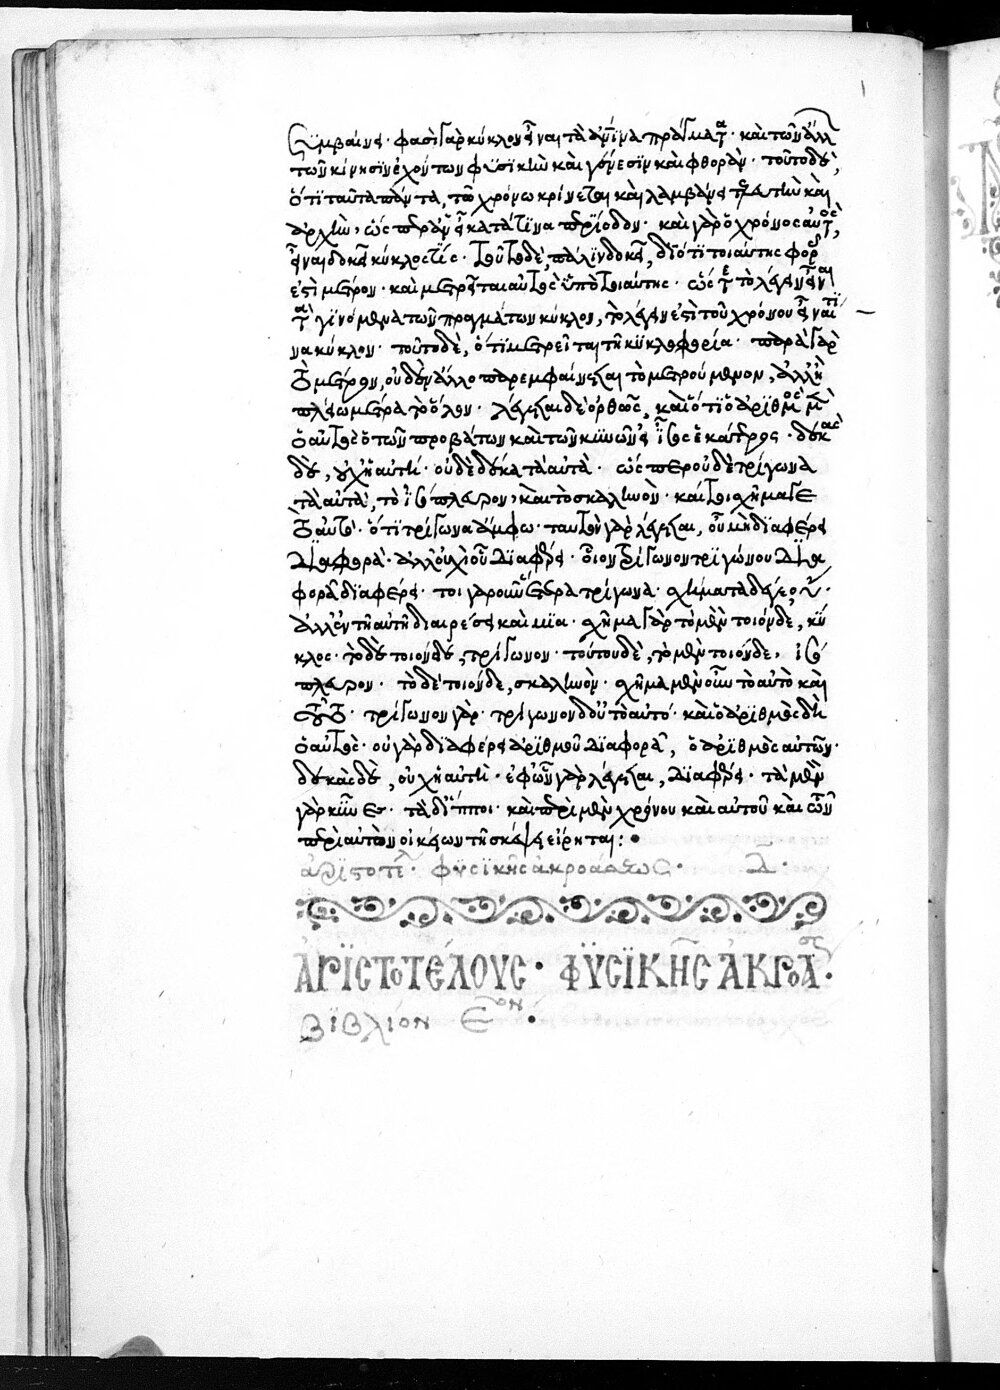 συμβαίνει· φασὶ γὰρ κύκλον εἶναι τὰ ἀνθρώπινα πράγματα· καὶ τῶν ἄλλων
τῶν κίνησιν ἐχόντων φυσικὴν καὶ γένεσιν καὶ φθοράν· τοῦτο δὲ,
ὅτι ταῦτα πάντα, τῶ χρόνω κρίνεται καὶ λαμβάνει τελευτὴν καὶ
ἀρχὴν, ὥσπερ ἂν εἰ κατά τινα περίοδον· καὶ γὰρ ὁ χρόνος αὐτὸς,
εἶναι δοκεῖ κύκλος τίς· τοῦτο δὲ πάλιν δοκεῖ, διότι τοιαύτης φορᾶς
ἐστὶ μέτρον· καὶ μετρεῖται αὐτὸς ὑπὸ τοιαύτης· ὥστε τὸ λέγειν εἶναι
τὰ γινόμενα τῶν πραγμάτων κύκλον, τὸ λέγειν ἐστὶ τοῦ χρόνου εἶναί τι
να κύκλον· τοῦτο δὲ, ὅτι μετρεῖται τῆ κυκλοφορία· παρὰ γὰρ
τὸ μέτρον, οὐδὲν ἄλλο παρεμφαίνεται τὸ μετρούμενον, ἀλλ' ἢ
πλείω μέτρα τὸ ὅλον· λέγεται δὲ ὀρθῶς, καὶ ὅτι ὁ ἀριθμὸς μὲν
ὁ αὐτὸς ὁ τῶν προβάτων καὶ τῶν κυνῶν εἰ ἴσος ἑκάτερος· δεκὰς
δὲ, οὐχ ἡ αὐτή· οὐδὲ δέκα τὰ αὐτά· ὥσπερ οὐδὲ τρίγωνα
τὰ αὐτὰ, τὸ ἰσόπλευρον, καὶ τὸ σκαληνόν· καίτοι σχῆμά γε
τὸ αὐτό· ὅτι τρίγωνα ἄμφω· ταυτὸν γὰρ λέγεται, οὗ μὴ διαφέρει
διαφορᾶ· ἀλλ' οὐχὶ οὗ διαφέρει· οἷον τρίγωνον τριγώνου δια
φορᾶ διαφέρει· τοιγαροῦν ἕτερα τρίγωνα· σχήματος δὲ, οὔ·
ἀλλ' ἐν τῆ αὐτῆ διαιρέσει καὶ μία· σχῆμα γὰρ τὸ μὲν τοιόνδε, κύ
κλος· τὸ δὲ τοιόνδε, τρίγωνον· τούτου δὲ, τὸ μὲν τοιόνδε, ἰσό
πλευρον· τὸ δὲ τοιόνδε, σκαληνόν· σχῆμα μὲν οὖν τὸ αὐτὸ καὶ
τοῦτο· τρίγωνον γάρ· τρίγωνον δ' οὐ τὸ αὐτό· καὶ ὁ ἀριθμὸς δὴ
ὁ αὐτὸς· οὐ γὰρ διαφέρει ἀριθμοῦ διαφορᾶ, ὁ ἀριθμὸς αὐτῶν·
δεκὰς δὲ, οὐχ ἡ αὐτή· ἐφ' ὧν γὰρ λέγεται, διαφέρει· τὰ μὲν
γὰρ κύνες· τὰ δ' ἵπποι· καὶ περὶ μὲν χρόνου καὶ αὐτοῦ καὶ τῶν
περὶ αὐτὸν οἰκείων τῆ σκέψει εἴρηται:
ἀριστοτέλους φυσικῆς ἀκροάσεως· Δ·
ἈΡΙΣΤΟΤΈΛΟΥΣ· ΦΥΣΙΚΗ͂Σ ἈΚΡΟΆΣ·
βιβλίον Εον·